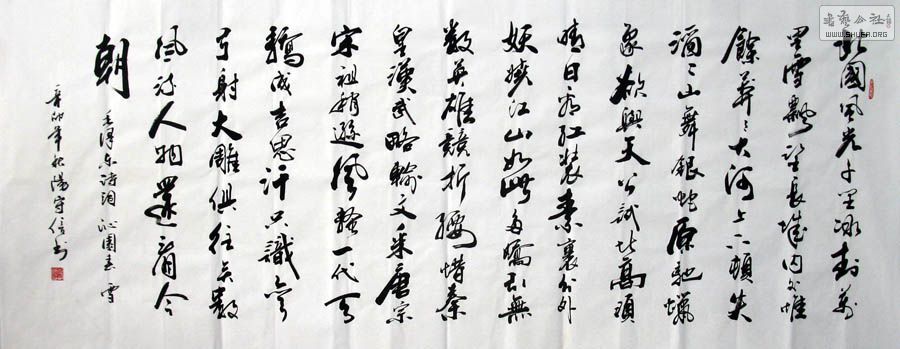 北國風光千里冰封萬
里雪飄望長城內外惟
餘莽〻大河上下頓失
滔〻山舞銀蛇原馳蠟
象欲與天公試比高須
晴日看紅裝素裹分外
妖嬈江山如此多嬌引無
數英雄競折腰惜秦
皇漢武略輸文采唐宗
宋祖稍遜風騷一代天
驕成吉思汗只識彎
弓射大雕俱往矣數
風流人物還看今
朝
毛澤東詩詞 沁園春 雪
辛卯年秋湯守信書
书艺公社
WWW.SHUFA.ORG